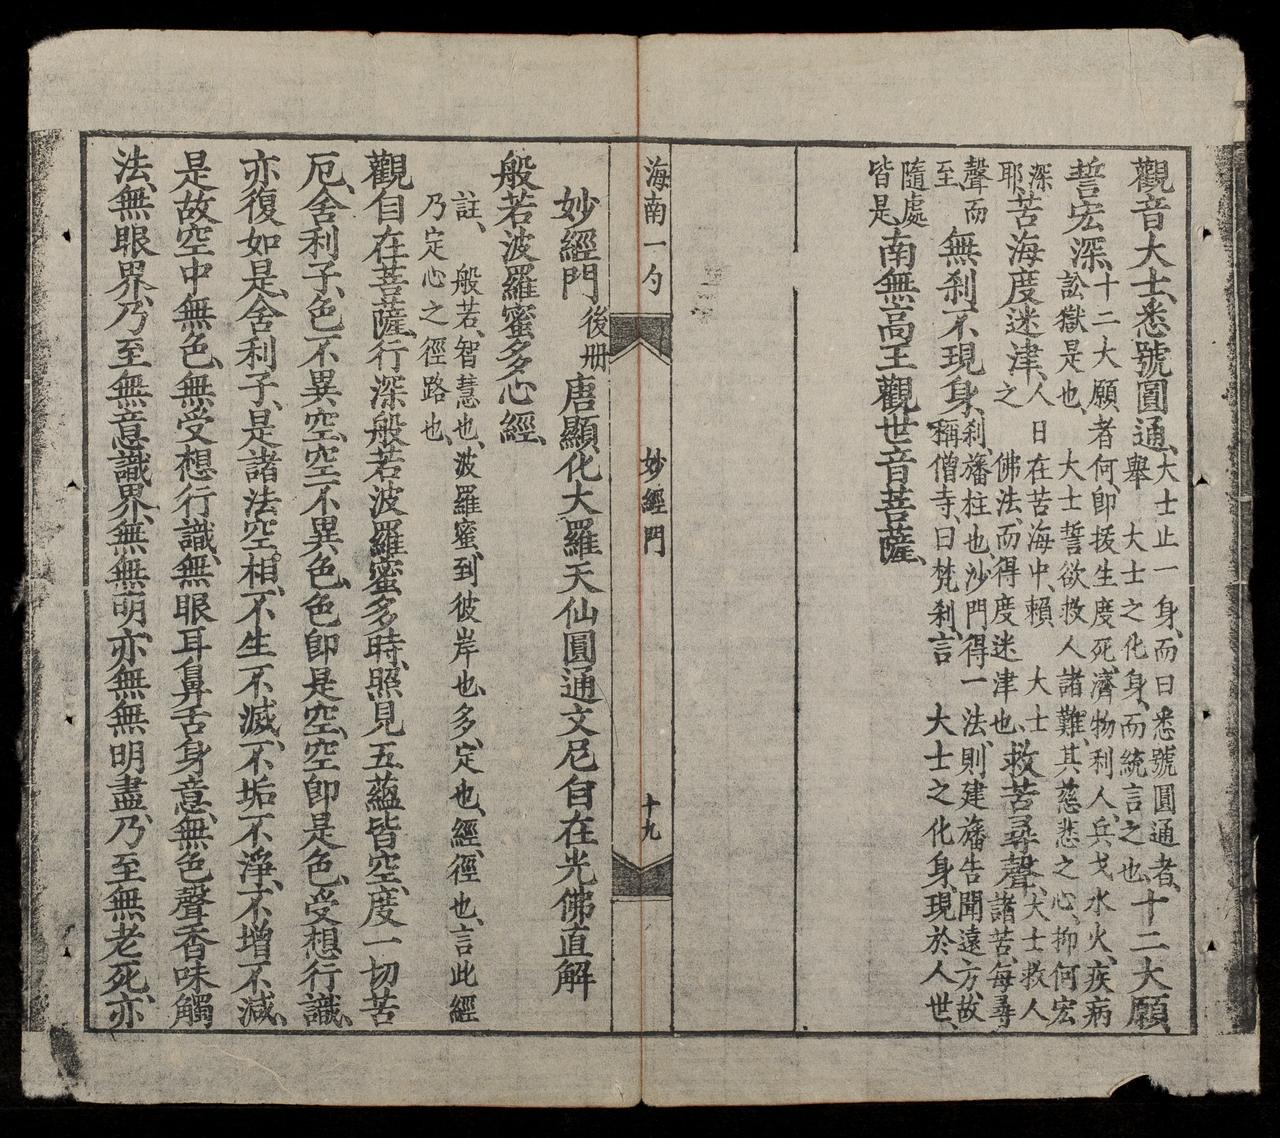 觀音大士、悉號圓通、大士止一身、而曰悉號圓通者、舉 大士之化身、而統言之也、十二大願、
誓宏深、十二大願者何、卽拔生度死、濟物利人、兵戈水火、疾病訟獄是也、 大士誓欲救人諸難、其慈悲之心、抑何宏
深耶苦海度迷津、人日在苦海中、賴 大士之 佛法、而得度迷津也、救苦尋聲、大士救人諸苦、每尋
聲而至、無刹不現身、刹、旛柱也、沙門得一法、則建旛告聞遠方、故稱僧寺、曰梵刹、言 大士之化身、現於人世、
隨處皆是南無高王觀世音菩薩、
海南一勺 妙經門 十九
妙經門 後册 唐顯化大羅天仙圓通文尼自在光佛直解
般若波羅蜜多心經、
註、 般若、智慧也、波羅蜜、到彼岸也、多、定也、經、徑也、言此經
乃定心之徑路也、
觀自在菩薩、行深般若波羅蜜多時、照見五蘊皆空、度一切苦
厄、舍利子、色不異空、空不異色、色卽是空、空卽是色、受想行識、
亦復如是、舍利子、是諸法空相、不生不滅、不垢不淨、不增不減、
是故空中無色、無受想行識、無眼耳鼻舌身意、無色聲香味觸
法、無眼界、乃至無意識界、無無明、亦無無明盡、乃至無老死、亦